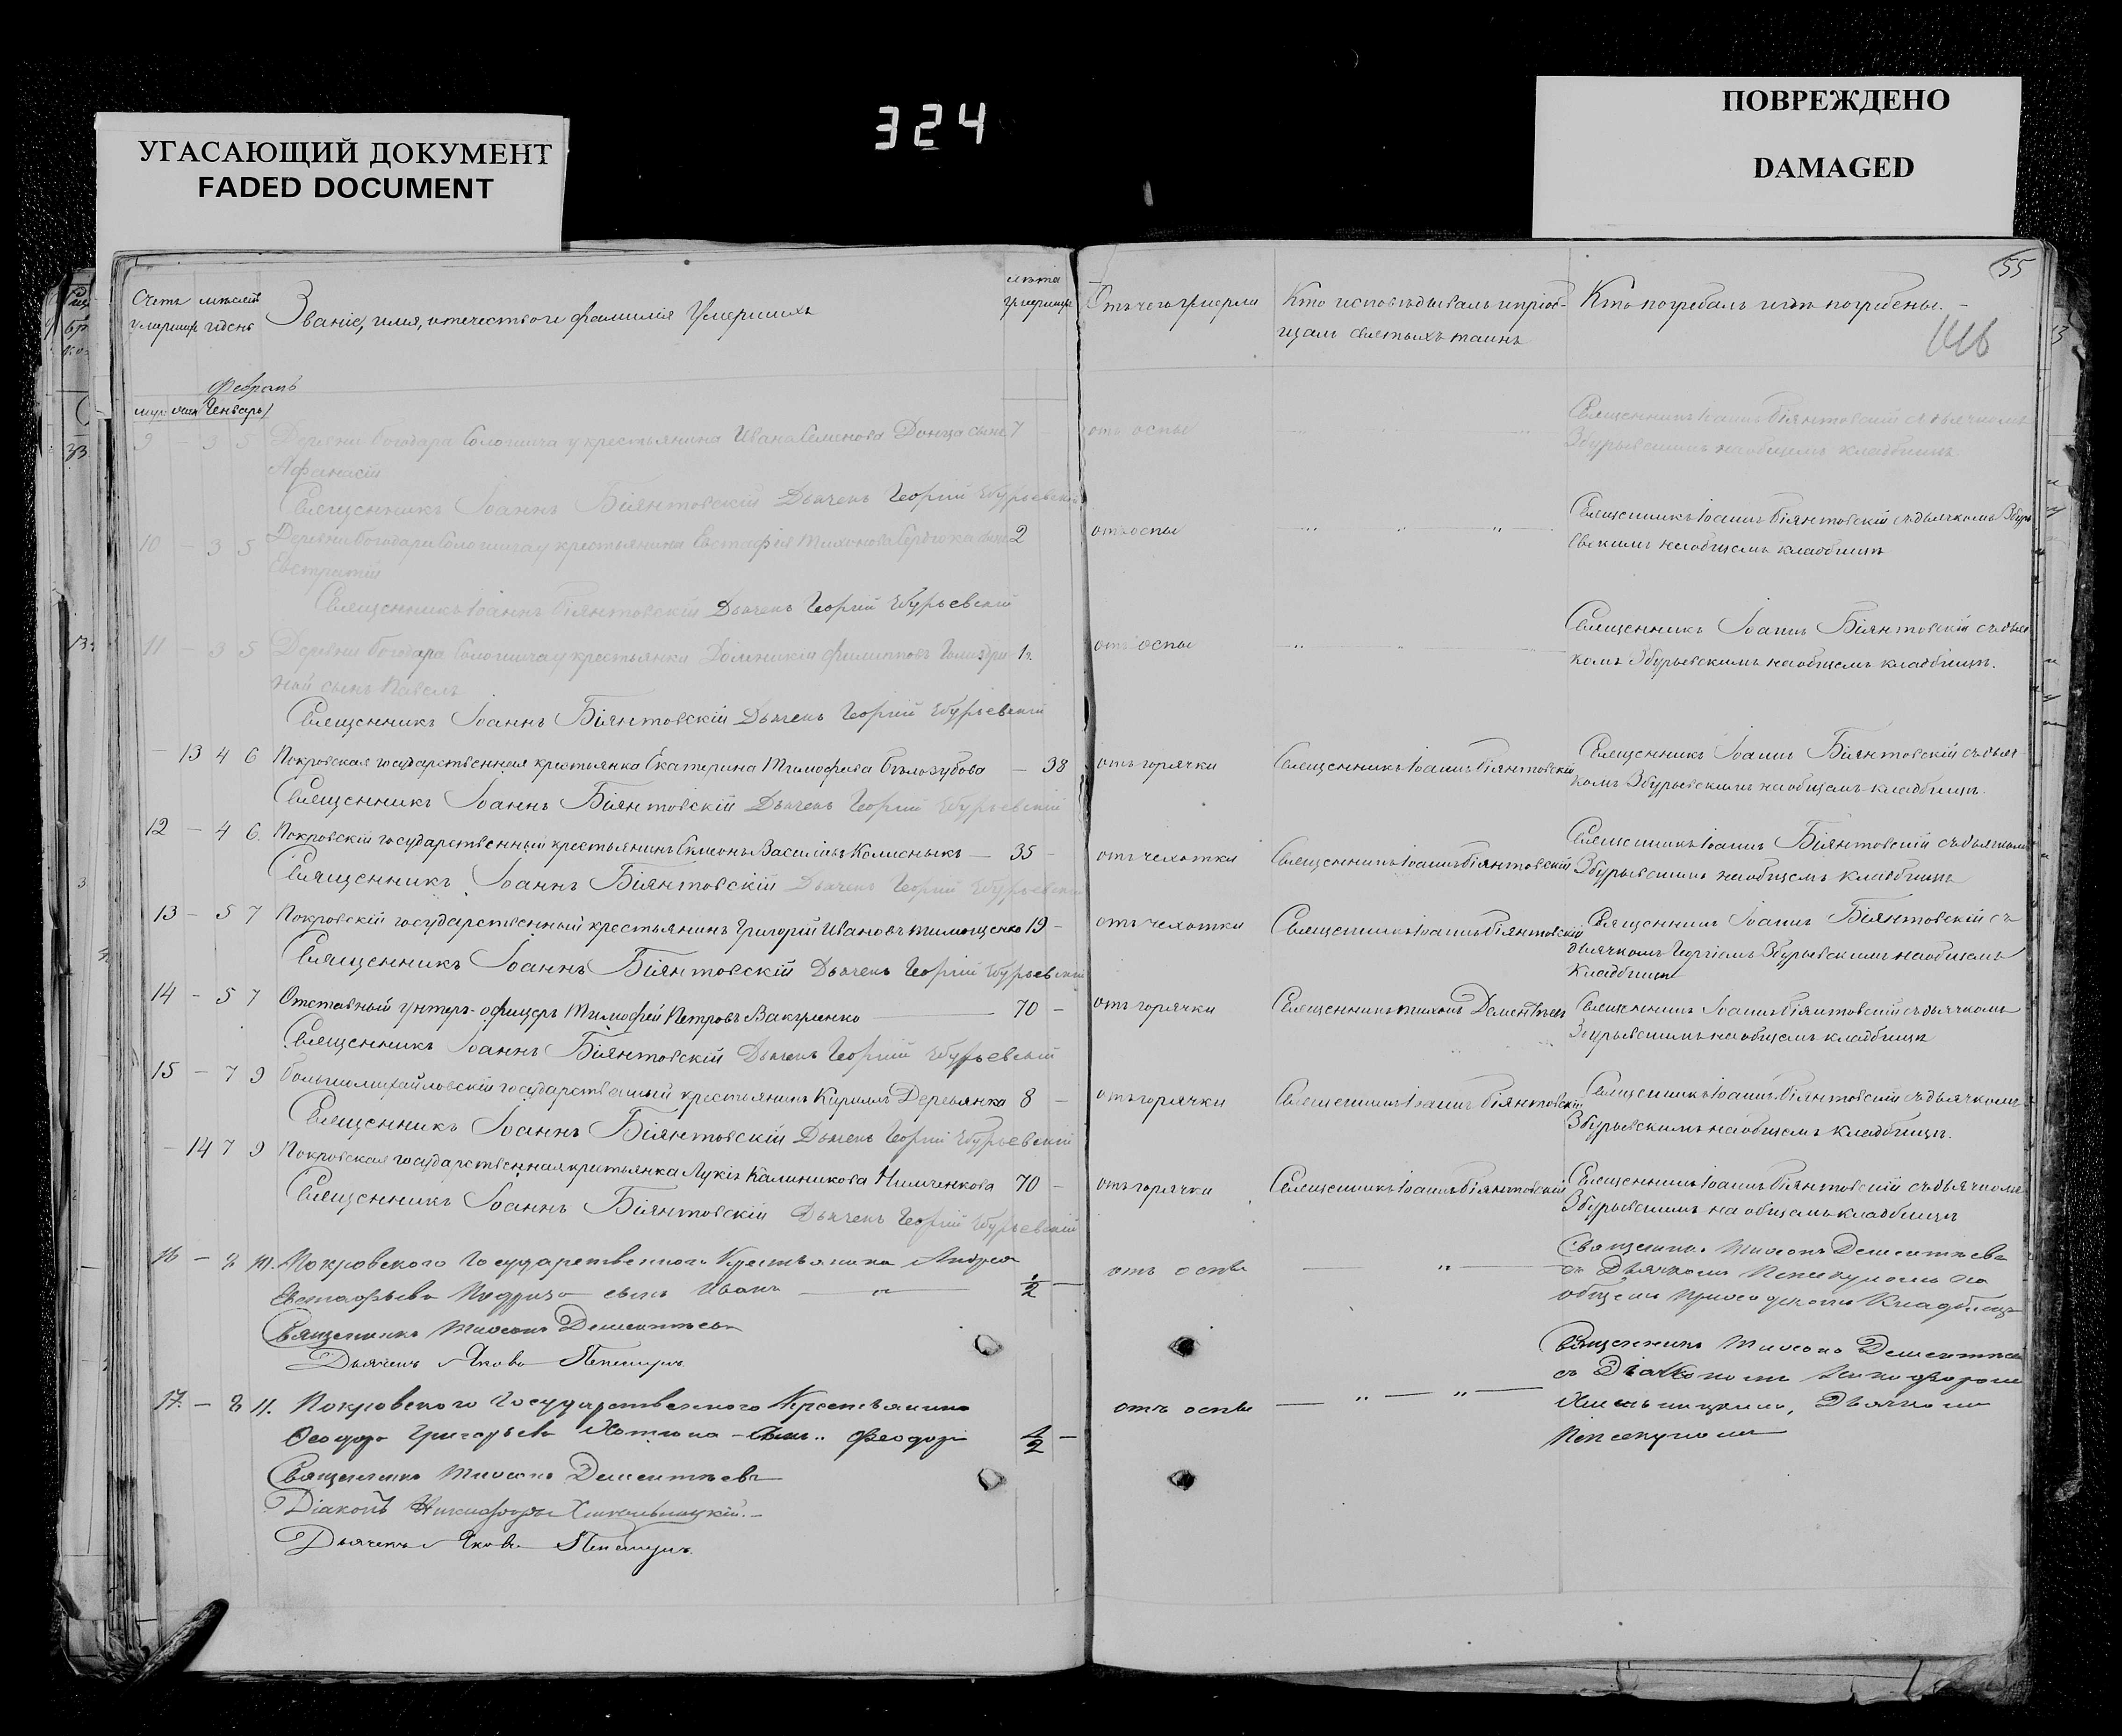 324
УГАСАЮЩИЙ ДОКУМЕНТ
FADED DOCUMENT
ПОВРЕЖДЕНО
DAMAGED
55
Счетъ умершихъ
мѣсяцъ и день
Званіе, имя, отечество и фамилія Умершихъ
лѣта умершихъ
Отъ чего умерли
Кто исповѣдывалъ и пріоб-
щалъ святыхъ таинъ
Кто погребалъ и гдѣ погребены.
Февраль
муж. жен. Январь
9 - 3 5 Деревни Богодара крестьянина Ивана Семенова Донца сынъ 7 - отъ оспы Священникъ Іоаннъ Біянтовскій съ дьячкомъ
Афанасій Збурьевскимъ на общемъ кладбищѣ
Священникъ Іоаннъ Біянтовскій Дьячекъ Георгій Збурьевскій
10 - 3 5 Деревни Богодара крестьянина Евстафія Тихонова сынъ 2 отъ оспы Священникъ Іоаннъ Біянтовскій съ дьячкомъ Збурь
Евстратій евскимъ на общемъ кладбищѣ
Священникъ Іоаннъ Біянтовскій Дьячекъ Георгій Збурьевскій
11 - 3 5 Деревни Богодара крестьянки сынъ Павелъ отъ оспы Священникъ Іоаннъ Біянтовскій съ дьяч
комъ Збурьевскимъ на общемъ кладбищѣ.
Священникъ Іоаннъ Біянтовскій Дьячекъ Георгій Збурьевскій
- 13 4 6 Покровская государственная крестьянка Екатерина Тимофеева Бѣлозубова - 38 отъ горячки Священникъ Іоаннъ Біянтовскій Священникъ Іоаннъ Біянтовскій съ дьяч
комъ Збурьевскимъ на общемъ кладбищѣ.
Священникъ Іоаннъ Біянтовскій Дьячекъ Георгій Збурьевскій
12 - 4 6. Покровскій государственный крестьянинъ Симеонъ Васильевъ Колисныкъ - 35 - отъ чехотки Священникъ Іоаннъ Біянтовскій Священникъ Іоаннъ Біянтовскій съ дьячкомъ
Збурьевскимъ на общемъ кладбищѣ
Священникъ Іоаннъ Біянтовскій Дьячекъ Георгій Збурьевскій
13 - 5 7 Покровскій государственный крестьянинъ Григорій Ивановъ Тимощенко 19 - отъ чехотки Священникъ Іоаннъ Біянтовскій Священникъ Іоаннъ Біянтовскій съ
дьячкомъ Георгіемъ Збурьевскимъ на общемъ
кладбищѣ
Священникъ Іоаннъ Біянтовскій Дьячекъ Георгій Збурьевскій
14 - 5 7 Отставный унтеръ-офицеръ Тимофей Петровъ Вакуленко 70 - отъ горячки Священникъ Тихонъ Дементьевъ Священникъ Іоаннъ Біянтовскій съ дьячкомъ
Збурьевскимъ на общемъ кладбищѣ
Священникъ Іоаннъ Біянтовскій Дьячекъ Георгій Збурьевскій
15 - 7 9 Большомихайловскій государственный крестьянинъ Кириллъ Деревянко 8 - отъ горячки Священникъ Іоаннъ Біянтовскій Священникъ Іоаннъ Біянтовскій съ дьячкомъ
Збурьевскимъ на общемъ кладбищѣ.
Священникъ Іоаннъ Біянтовскій Дьячекъ Георгій Збурьевскій
- 14 7 9 Покровская государственная крестьянка Лукія Калиникова Нимченкова 70 - отъ горячки Священникъ Іоаннъ Біянтовскій Священникъ Іоаннъ Біянтовскій съ дьячкомъ
Збурьевскимъ на общемъ кладбищѣ
Священникъ Іоаннъ Біянтовскій Дьячекъ Георгій Збурьевскій
16 - 8 10. Покровского Государственного Крестьянина Андрея отъ оспы Священникъ Тихонъ Дементьевъ
Евстафьева сынъ Иванъ 1/2 - съ Дьячкомъ на
общемъ приходскомъ Кладбищѣ
Священникъ Тихонъ Дементьевъ
Дьячекъ Яковъ
17. - 8 11. Покровского Государственного Крестьянина отъ оспы Священникъ Тихонъ Дементьевъ
Феодора Григорьева сынъ Феодоръ 1/2 - съ Діакономъ Никифоромъ
Хмельницкимъ, Дьячкомъ
Священникъ Тихонъ Дементьевъ
Діаконъ Никифоръ Хмельницкій.
Дьячекъ Яковъ